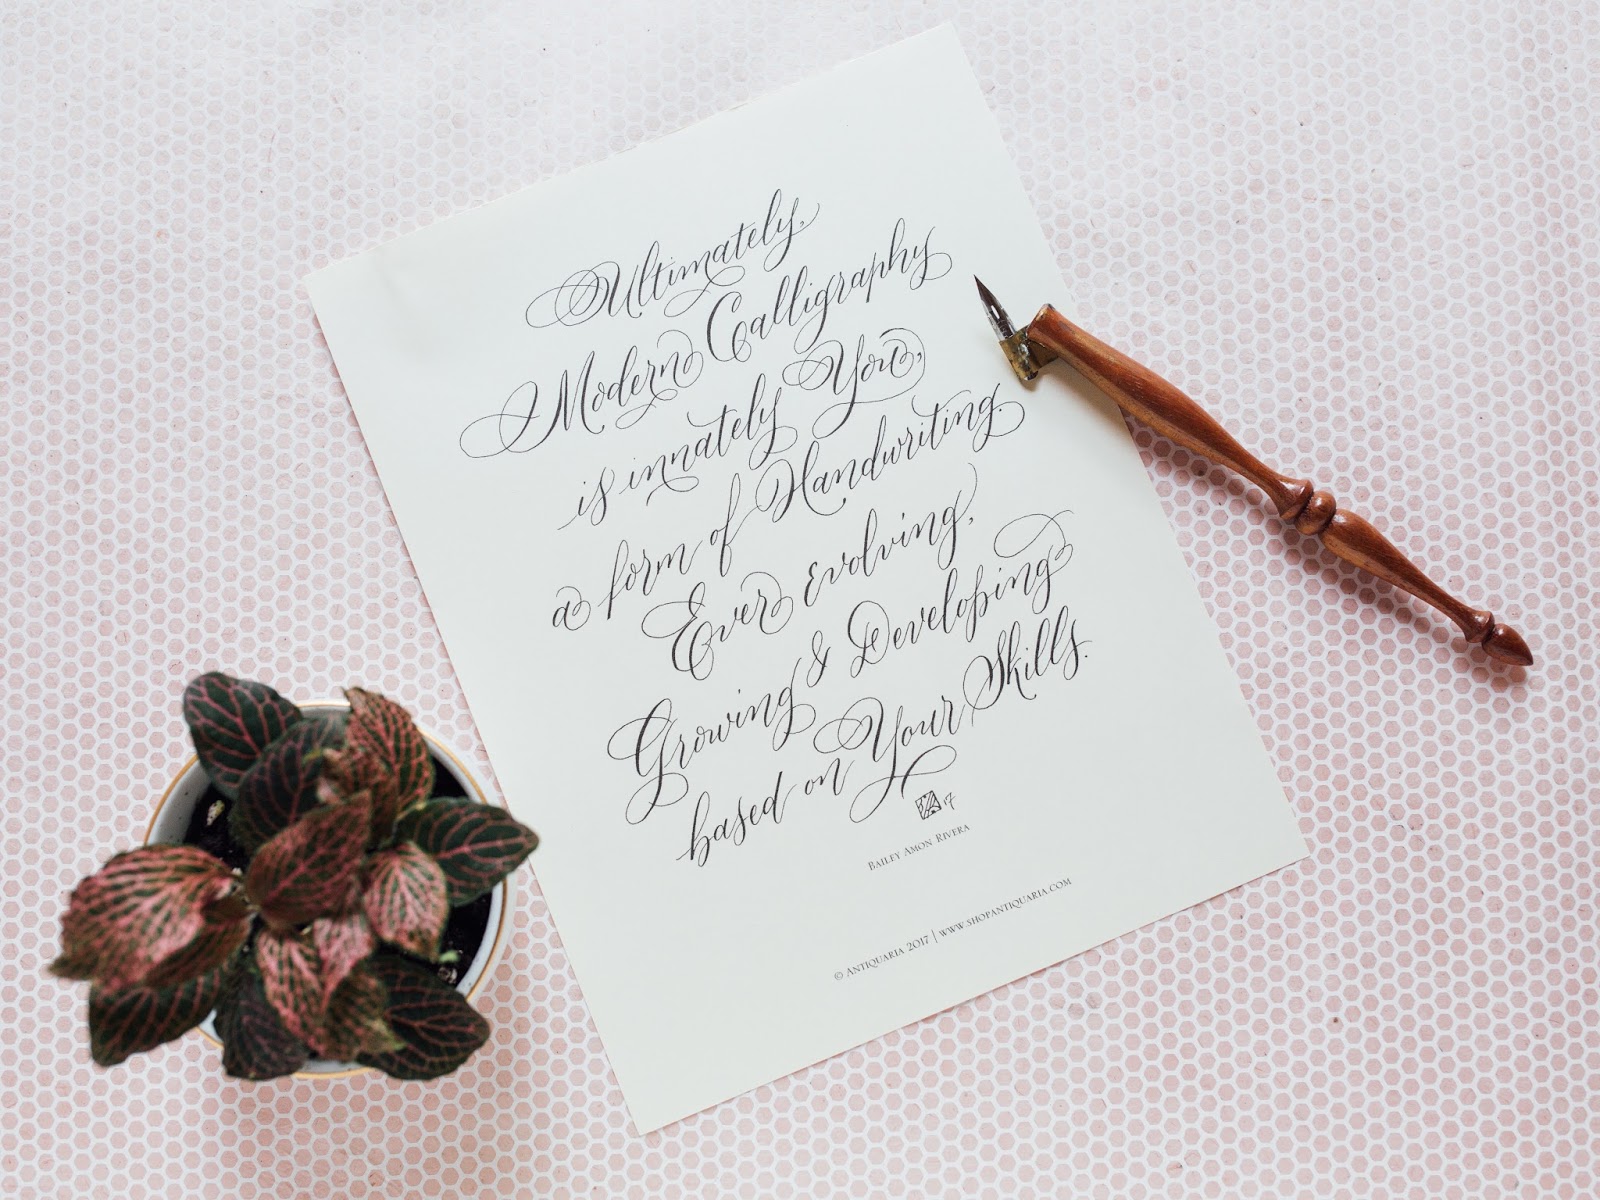 Ultimately,
Modern Calligraphy
is innately You,
a form of Handwriting.
Ever Evolving,
Growing & Developing
based on Your Skills.
BAILEY AMON RIVERA
© ANTIQUARIA 2017 | WWW.SHOPANTIQUARIA.COM